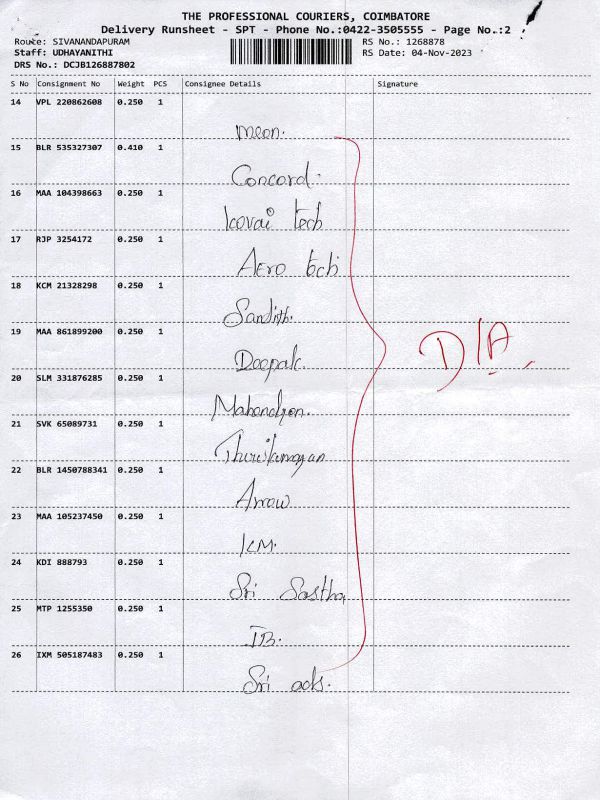 THE PROFESSIONAL COURIERS, COIMBATORE
Delivery Runsheet - SPT - Phone No.:0422-3505555 - Page No.:2
Route: SIVANANDAPURAM RS No.: 1268878
Staff: UDHAYANITHI RS Date: 04-Nov-2023
DRS No.: DCJB126887802
S No Consignment No Weight PCS Consignee Details Signature
14 VPL 220862608 0.250 1
meon.
15 BLR 535327307 0.410 1
Concord.
16 MAA 104398663 0.250 1
kovai tech
17 RJP 3254172 0.250 1
Aero tech
18 KCM 21328298 0.250 1
Sandith.
19 MAA 861899200 0.250 1
Deepak.
D/A
20 SLM 331876285 0.250 1
21 SVK 65089731 0.250 1
22 BLR 1450788341 0.250 1
Arrow
23 MAA 105237450 0.250 1
KM.
24 KDI 888793 0.250 1
Sri Sastha
25 MTP 1255350 0.250 1
IB.
26 IXM 505187483 0.250 1
Sri ads.